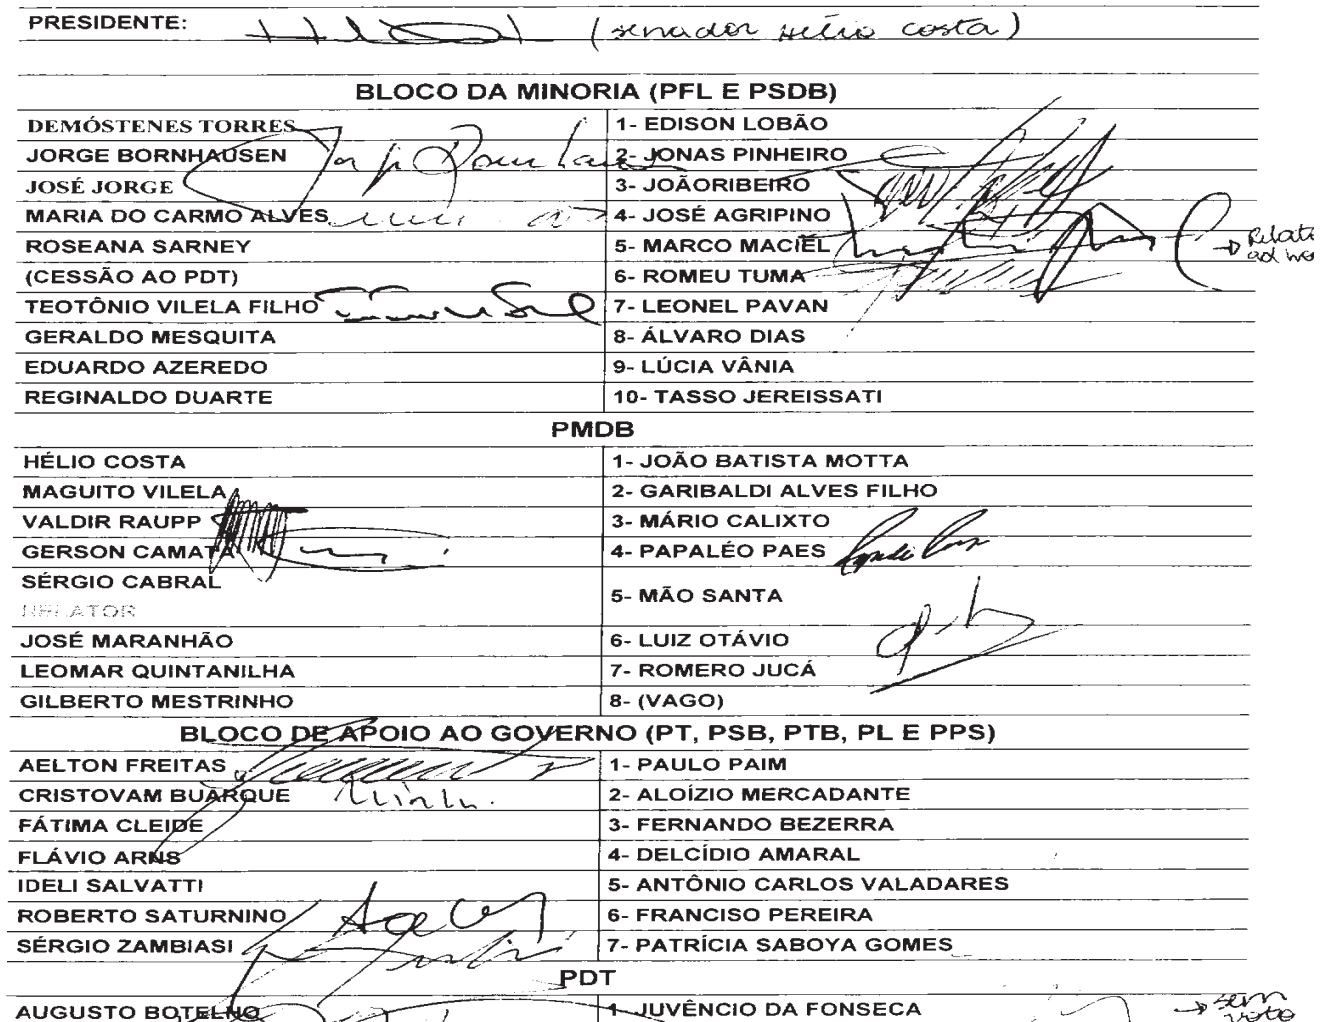 PRESIDENTE: (senador Hélio Costa)
BLOCO DA MINORIA (PFL E PSDB)
DEMÓSTENES TORRES 1- EDISON LOBÃO
JORGE BORNHAUSEN 2- JONAS PINHEIRO
JOSÉ JORGE 3- JOÃORIBEIRO
MARIA DO CARMO ALVES 4- JOSÉ AGRIPINO
ROSEANA SARNEY 5- MARCO MACIEL
(CESSÃO AO PDT) 6- ROMEU TUMA
TEOTÔNIO VILELA FILHO 7- LEONEL PAVAN
GERALDO MESQUITA 8- ÁLVARO DIAS
EDUARDO AZEREDO 9- LÚCIA VÂNIA
REGINALDO DUARTE 10- TASSO JEREISSATI
PMDB
HÉLIO COSTA 1- JOÃO BATISTA MOTTA
MAGUITO VILELA 2- GARIBALDI ALVES FILHO
VALDIR RAUPP 3- MÁRIO CALIXTO
GERSON CAMATA 4- PAPALÉO PAES
SÉRGIO CABRAL 5- MÃO SANTA
RELATOR
JOSÉ MARANHÃO 6- LUIZ OTÁVIO
LEOMAR QUINTANILHA 7- ROMERO JUCÁ
GILBERTO MESTRINHO 8- (VAGO)
BLOCO DE APOIO AO GOVERNO (PT, PSB, PTB, PL E PPS)
AELTON FREITAS 1- PAULO PAIM
CRISTOVAM BUARQUE 2- ALOÍZIO MERCADANTE
FÁTIMA CLEIDE 3- FERNANDO BEZERRA
FLÁVIO ARNS 4- DELCÍDIO AMARAL
IDELI SALVATTI 5- ANTÔNIO CARLOS VALADARES
ROBERTO SATURNINO 6- FRANCISO PEREIRA
SÉRGIO ZAMBIASI 7- PATRÍCIA SABOYA GOMES
PDT
AUGUSTO BOTELHO 1- JUVÊNCIO DA FONSECA → sem
voto